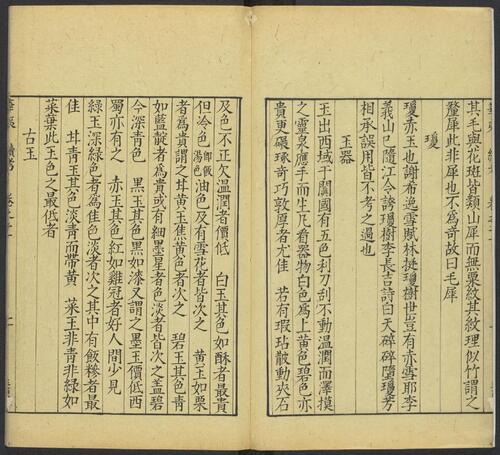 其毛與花斑皆類山犀而無粟紋其紋理似竹謂之
犛犀此非犀也不為奇故曰毛犀
瓊
瓊亦玉也謝希逸雪賦林挺瓊樹世豈有赤雪耶李
義山已隨江令誇瓊樹李長吉詩曰天碎碎墮瓊芳
相承誤用皆不考之過也
玉器
玉出西域于闐國有五色利刀刮不動溫潤而澤摸
之靈泉應手而生凡看器物白色為上黃色碧色亦
貴更碾琢奇巧敦厚者尤佳 若有瑕玷皴動夾石
及色不正欠溫潤者價低 白玉其色如酥者最貴
但冷色即飯湯色油色及有雪花者皆次之 黃玉如栗
者為貴謂之甘黃玉焦黃色者次之 碧玉其色青
如藍靛者為貴或有細墨星者色淡者皆次之蓋碧
今深青色 黑玉其色黑如漆又謂之墨玉價低西
蜀亦有之 赤玉其色紅如雞冠者好人間少見
綠玉深綠色者為佳色淡者次之其中有飯糝者最
佳 甘青玉其色淡青而帶黃 菜玉非青非綠如
菜葉此玉色之最低者
古玉